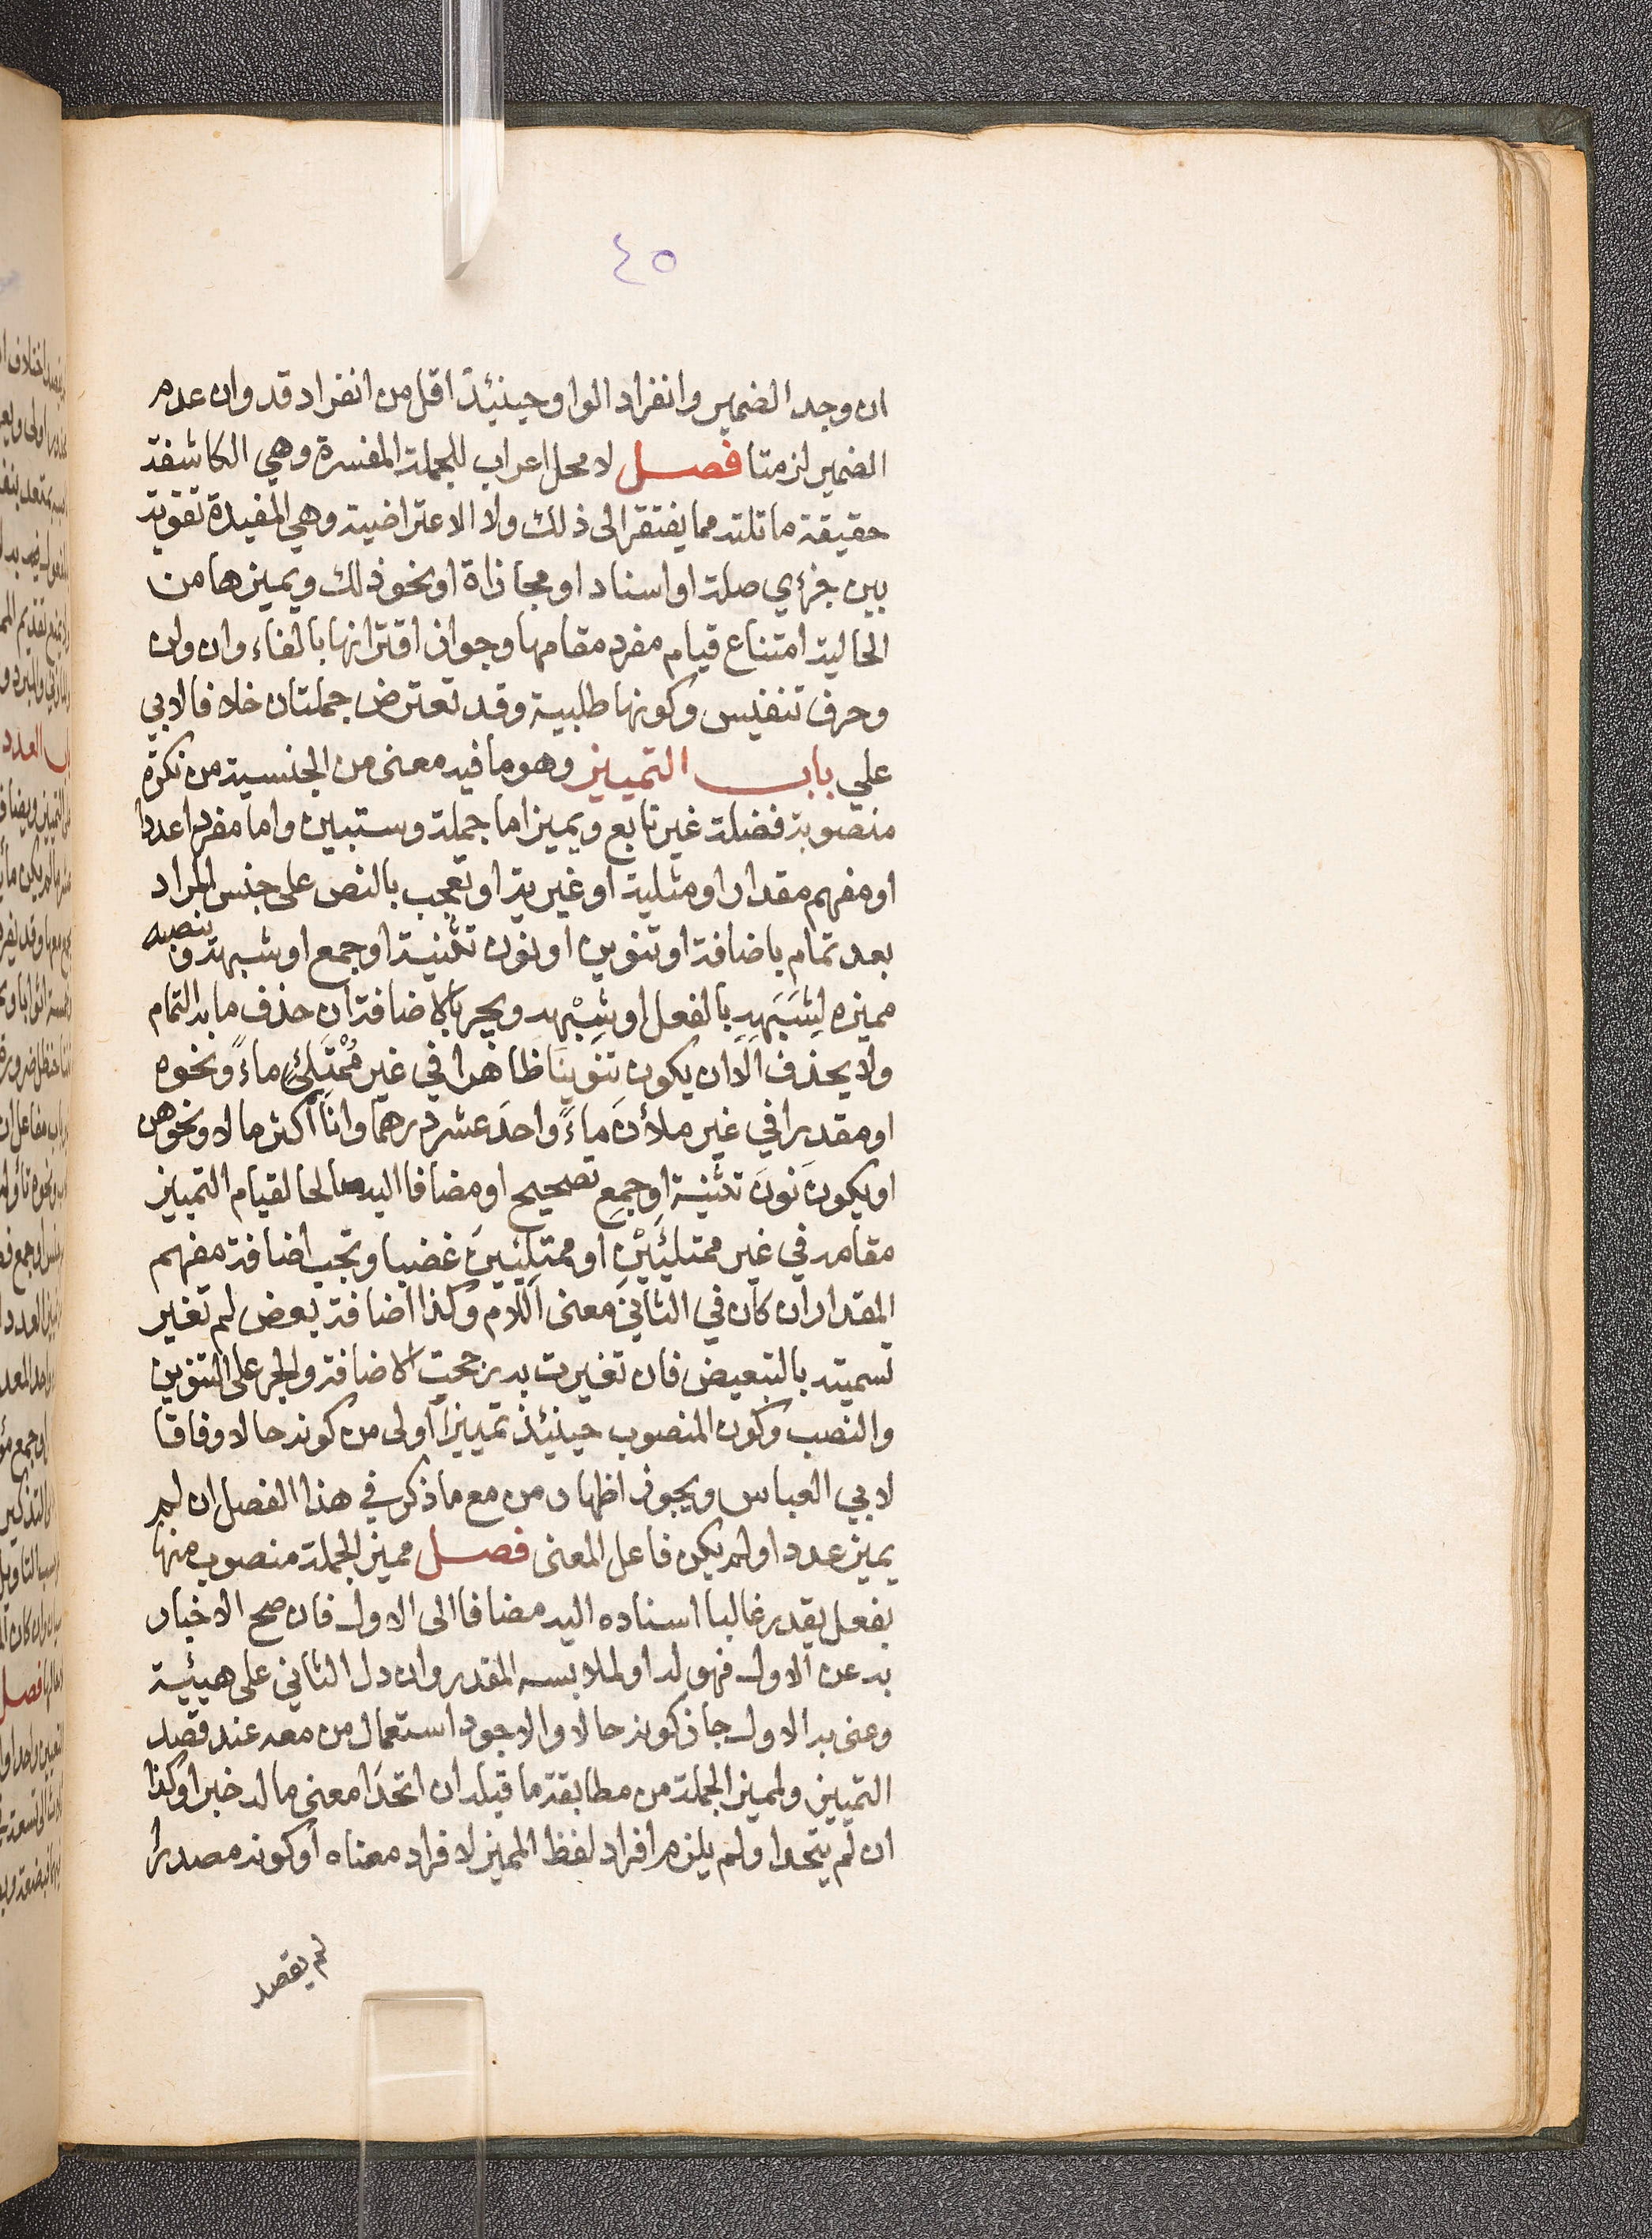 ٤٥
ان وجد الضمير وانفراد الواو حينئذ اقل من انفراد قد وان عدم
الضمير لزمتا فصل لا محل اعراب للجملة المفسرة وهي الكاشفة
حقيقة ما تلته مما يفتقر الى ذلك ولا الاعتراضية وهي المفيدة تقوية
بين جزءي صلة او اسناد او مجازاة او نحو ذلك ويميزها من
الحالية امتناع قيام مفرد مقامها وجواز اقترانها بالفاء وان ولن
وحرف تنفيس وكونها طلبية وقد تعترض جملتان خلافا لابي
علي باب التمييز وهو ما فيه معنى من الجنسية من نكرة
منصوبة فضلة غير تابع ويميز اما جملة وستبين واما مفردا عددا
او مفهم مقدار او مثلية او غيرية او تعجب بالنص على جنس المراد
بعد تمام باضافة او تنوين او نون تثنية او جمع او شبهه وينصبه
مميزه لِشَبَهِهِ بالفعل او شِبْهه ويجر بالاضافة ان حذف ما به التمام
ولا يحذف الا ان يكون تنوينا ظاهرا في غير مُمْتَلِئٍ ماءً ونحوه
او مقدرا في غير ملأن ماءً واحدَ عشر درهما وانا أكثر مالا ونحوهن
او يكون نونَ تثنية او جمعِ تصحيح او مضافا اليه صالحا لقيام التمييز
مقامه في غير ممتلِئَيْنِ او ممتلِئِينَ غضبا وتجب اضافة مفهم
المقدار ان كان في الثاني معنى اللام وكذا اضافة بعض لم تغير
تسميته بالتبعيض فان تغيرت به رجحت الاضافة والجر على التنوين
والنصب وكون المنصوب حينئذ تمييزا أولى من كونه حالا وفاقا
لابي العباس ويجوز اظهار من مع ما ذكر في هذا الفصل ان لم
يميز عددا ولم يكن فاعل المعنى فصل مميز الجملة منصوب منها
بفعل يقدر غالبا اسناده اليه مضافا الى الاول فان صح الاخبار
به عن الاول فهو له او لملابسه المقدر وان دل الثاني على هيئية
وعنى به الاول جاز كونه حالا والاجود استعمال من معه عند قصد
التمييز ولمميز الجملة من مطابقة ما قبله ان اتحدا معنى ما له خبرا وكذا
ان لم يتحدا ولم يلزم افراد لفظ المميز لافراد معناه أو كونه مصدرا
لم يقصد